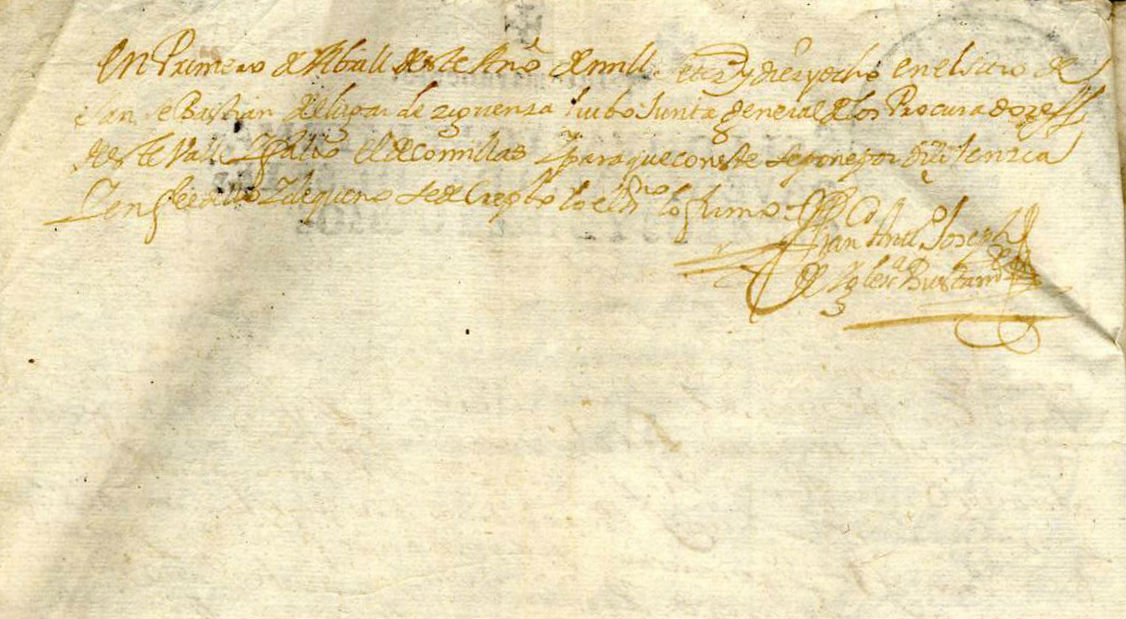 En Primero de Abrill deste Año de mill settᵒˢ y diez y ocho en el sitio de
San Se Bastian del lugar de ziguenza hubo Junta general de los Procuradores
deste Valle Y falto el de Comillas Y para que conste se pone por diligenzia
Y en fee dello Y de que no se decrepto Yo el ssⁿᵒ lo firmo
Fran Antᵒ Joseph
de Iglesᵃ Bustamᵗᵉ